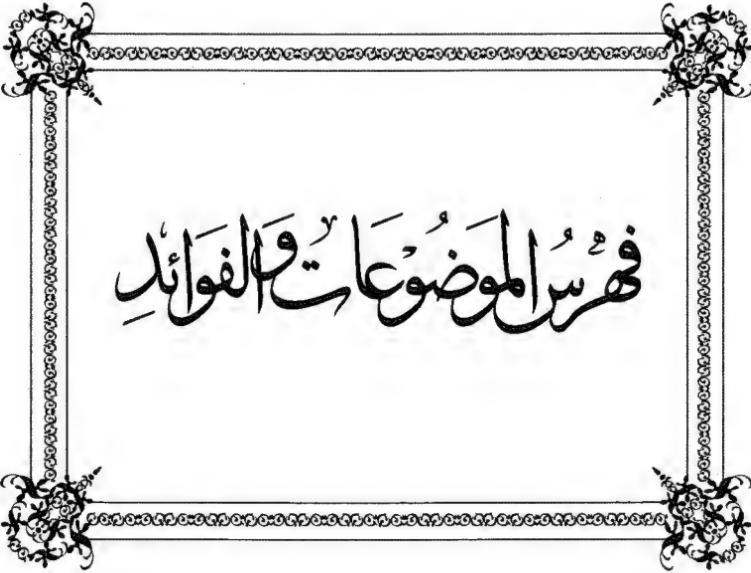 فهرس الموضوعات والفوائد